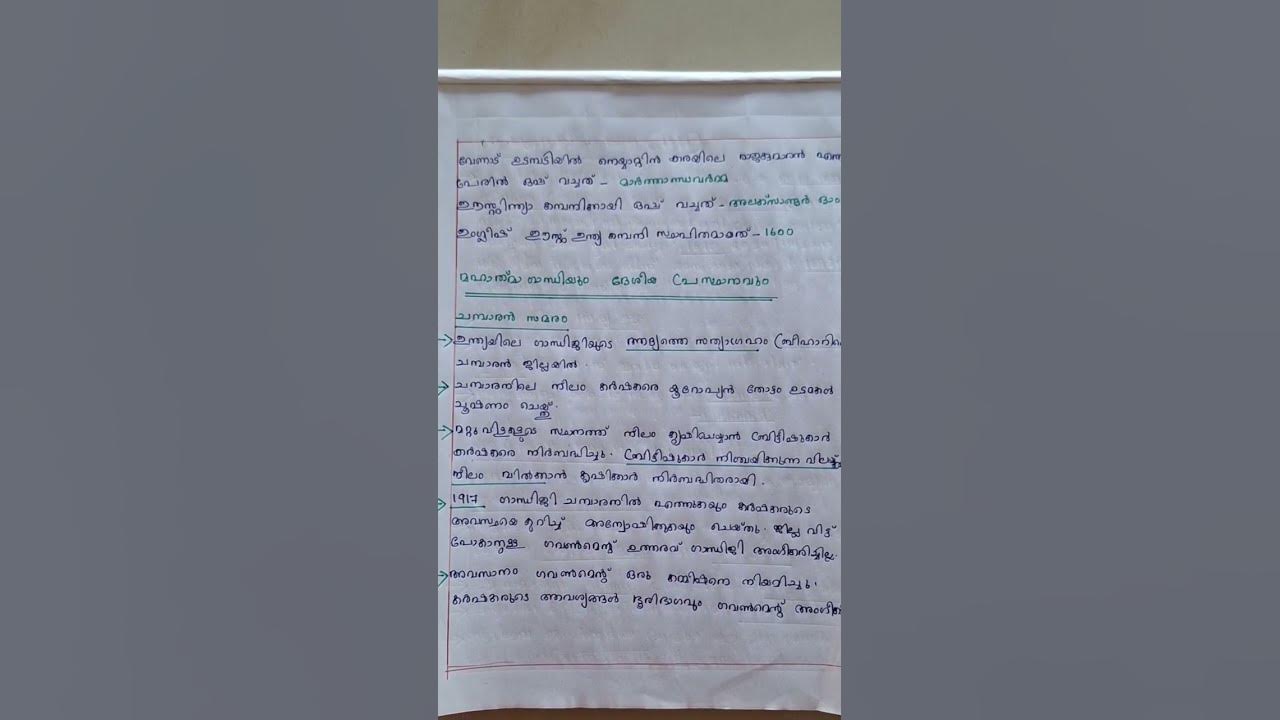 വേണാട് ഉടമ്പടിയിൽ നെയ്യാറ്റിൻ കരയിലെ രാജകുമാരൻ എന്ന
പേരിൽ ഒപ്പ് വച്ചത് - മാർത്താണ്ഡവർമ്മ
ഈസ്റ്റിന്ത്യാ കമ്പനിക്കായി ഒപ്പ് വച്ചത് - അലക്സാണ്ടർ ഓം
ഇംഗ്ലീഷ് ഈസ്റ്റ് ഇന്ത്യ കമ്പനി സ്ഥാപിതമായത് - 1600
മഹാത്മാ ഗാന്ധിയും ദേശീയ പ്രസ്ഥാനവും
ചമ്പാരൻ സമരം
→ ഇന്ത്യയിലെ ഗാന്ധിജിയുടെ ആദ്യത്തെ സത്യാഗ്രഹം (ബീഹാറിലെ
ചമ്പാരൻ ജില്ലയിൽ.
→ ചമ്പാരനിലെ നീലം കർഷകരെ യൂറോപ്യൻ തോട്ടം ഉടമകൾ
ചൂഷണം ചെയ്തു.
→ മറ്റു വിളകളുടെ സ്ഥാനത്ത് നീലം കൃഷിചെയ്യാൻ ബ്രിട്ടീഷുകാർ
കർഷകരെ നിർബന്ധിച്ചു. ബ്രിട്ടീഷുകാർ നിശ്ചയിക്കുന്ന വിലയ്ക്ക്
നീലം വിൽക്കാൻ കൃഷിക്കാർ നിർബന്ധിതരായി.
→ 1917 ഗാന്ധിജി ചമ്പാരനിൽ എത്തുകയും കർഷകരുടെ
അവസ്ഥയെ കുറിച്ച് അന്വേഷിക്കുകയും ചെയ്തു. ജില്ല വിട്ട്
പോകാനുള്ള ഗവൺമെന്റ് ഉത്തരവ് ഗാന്ധിജി അംഗീകരിച്ചില്ല.
→ അവസാനം ഗവൺമെന്റ് ഒരു കമ്മീഷനെ നിയമിച്ചു.
കർഷകരുടെ ആവശ്യങ്ങൾ ഭൂരിഭാഗവും ഗവൺമെന്റ്